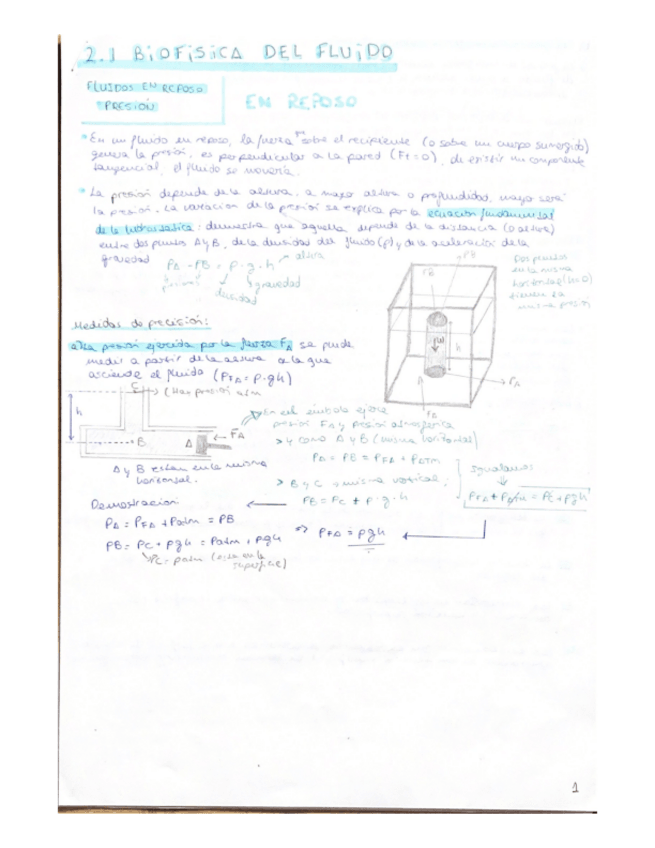 2.1 BIOFISICA DEL FLUIDO
FLUIDOS EN REPOSO
PRESIÓN
EN REPOSO
En un fluido en reposo, la fuerza que sobre el recipiente (o sobre un cuerpo sumergido)
genera la presión, es perpendicular a la pared (Ft=0), de existir un componente
tangencial, el fluido se movería.
La presión depende de la altura, a mayor altura o profundidad, mayor será
la presión. La variación de la presión se explica por la ecuación fundamental
de la hidrostática: demuestra que aquella depende de la distancia (o altura)
entre dos puntos A y B, de la densidad del fluido (ρ) y de la aceleración de la
gravedad
PA - PB = ρ · g · h → altura
gravedad
densidad
Dos puntos
en la misma
horizontal (h=0)
tienen la
misma presión
FB
PB
w
h
A
FA
FB
Medidas de precisión:
La presión ejercida por la fuerza FA se puede
medir a partir de la altura a la que
asciende el fluido (PFA = ρ·gh)
C → (Hay presión atm
h
B
A
FA
A y B están en la misma
horizontal.
En el émbolo ejerce
presión FA y presión atmosférica
> y como A y B (misma horizontal)
PA = PB = PFA + PATM
> B y C → misma vertical;
PB = PC + ρ·g·h
Igualamos
PFA + Patm = PC + ρgh
Demostración
PA = PFA + Patm = PB
PB = PC + ρgh = Patm + ρgh
⇒ PFA = ρgh
PC = Patm (está en la
superficie)
1